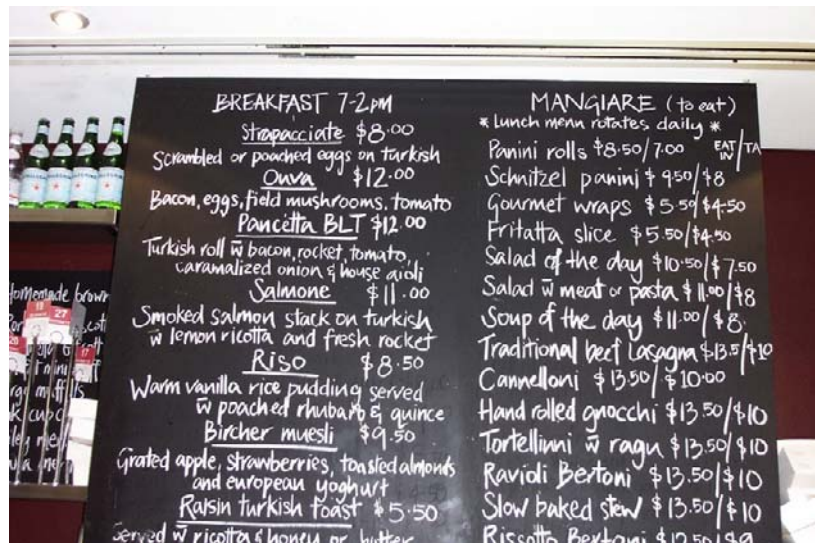 BREAKFAST 7-2pm
Strapacciate $8.00
Scrambled or poached eggs on turkish
Ouva $12.00
Bacon, eggs, field mushrooms, tomato
Pancetta BLT $12.00
Turkish roll w̄ bacon, rocket, tomato,
caramalized onion & house aioli
Salmone $11.00
Smoked salmon stack on turkish
w̄ lemon ricotta and fresh rocket
Riso $8.50
Warm vanilla rice pudding served
w̄ poached rhubarb & quince
Bircher muesli $9.50
Grated apple, strawberries, toasted almonds
and european yoghurt
Raisin turkish toast $5.50
Served w̄ ricotta & honey or butter
MANGIARE (to eat)
* lunch menu rotates daily *
EAT IN/TA
Panini rolls $8.50/7.00
Schnitzel panini $9.50/$8
Gourmet wraps $5.50/$4.50
Fritatta slice $5.50/$4.50
Salad of the day $10.50/$7.50
Salad w̄ meat or pasta $11.00/$8
Soup of the day $11.00/$8
Traditional beef lasagna $13.5/$10
Cannelloni $13.50/$10.00
Hand rolled gnocchi $13.50/$10
Tortellinni w̄ ragu $13.50/$10
Ravioli Bertoni $13.50/$10
Slow baked stew $13.50/$10
Rissotto Bertoni $12.50/$9
homemade brown
19
27
20
17